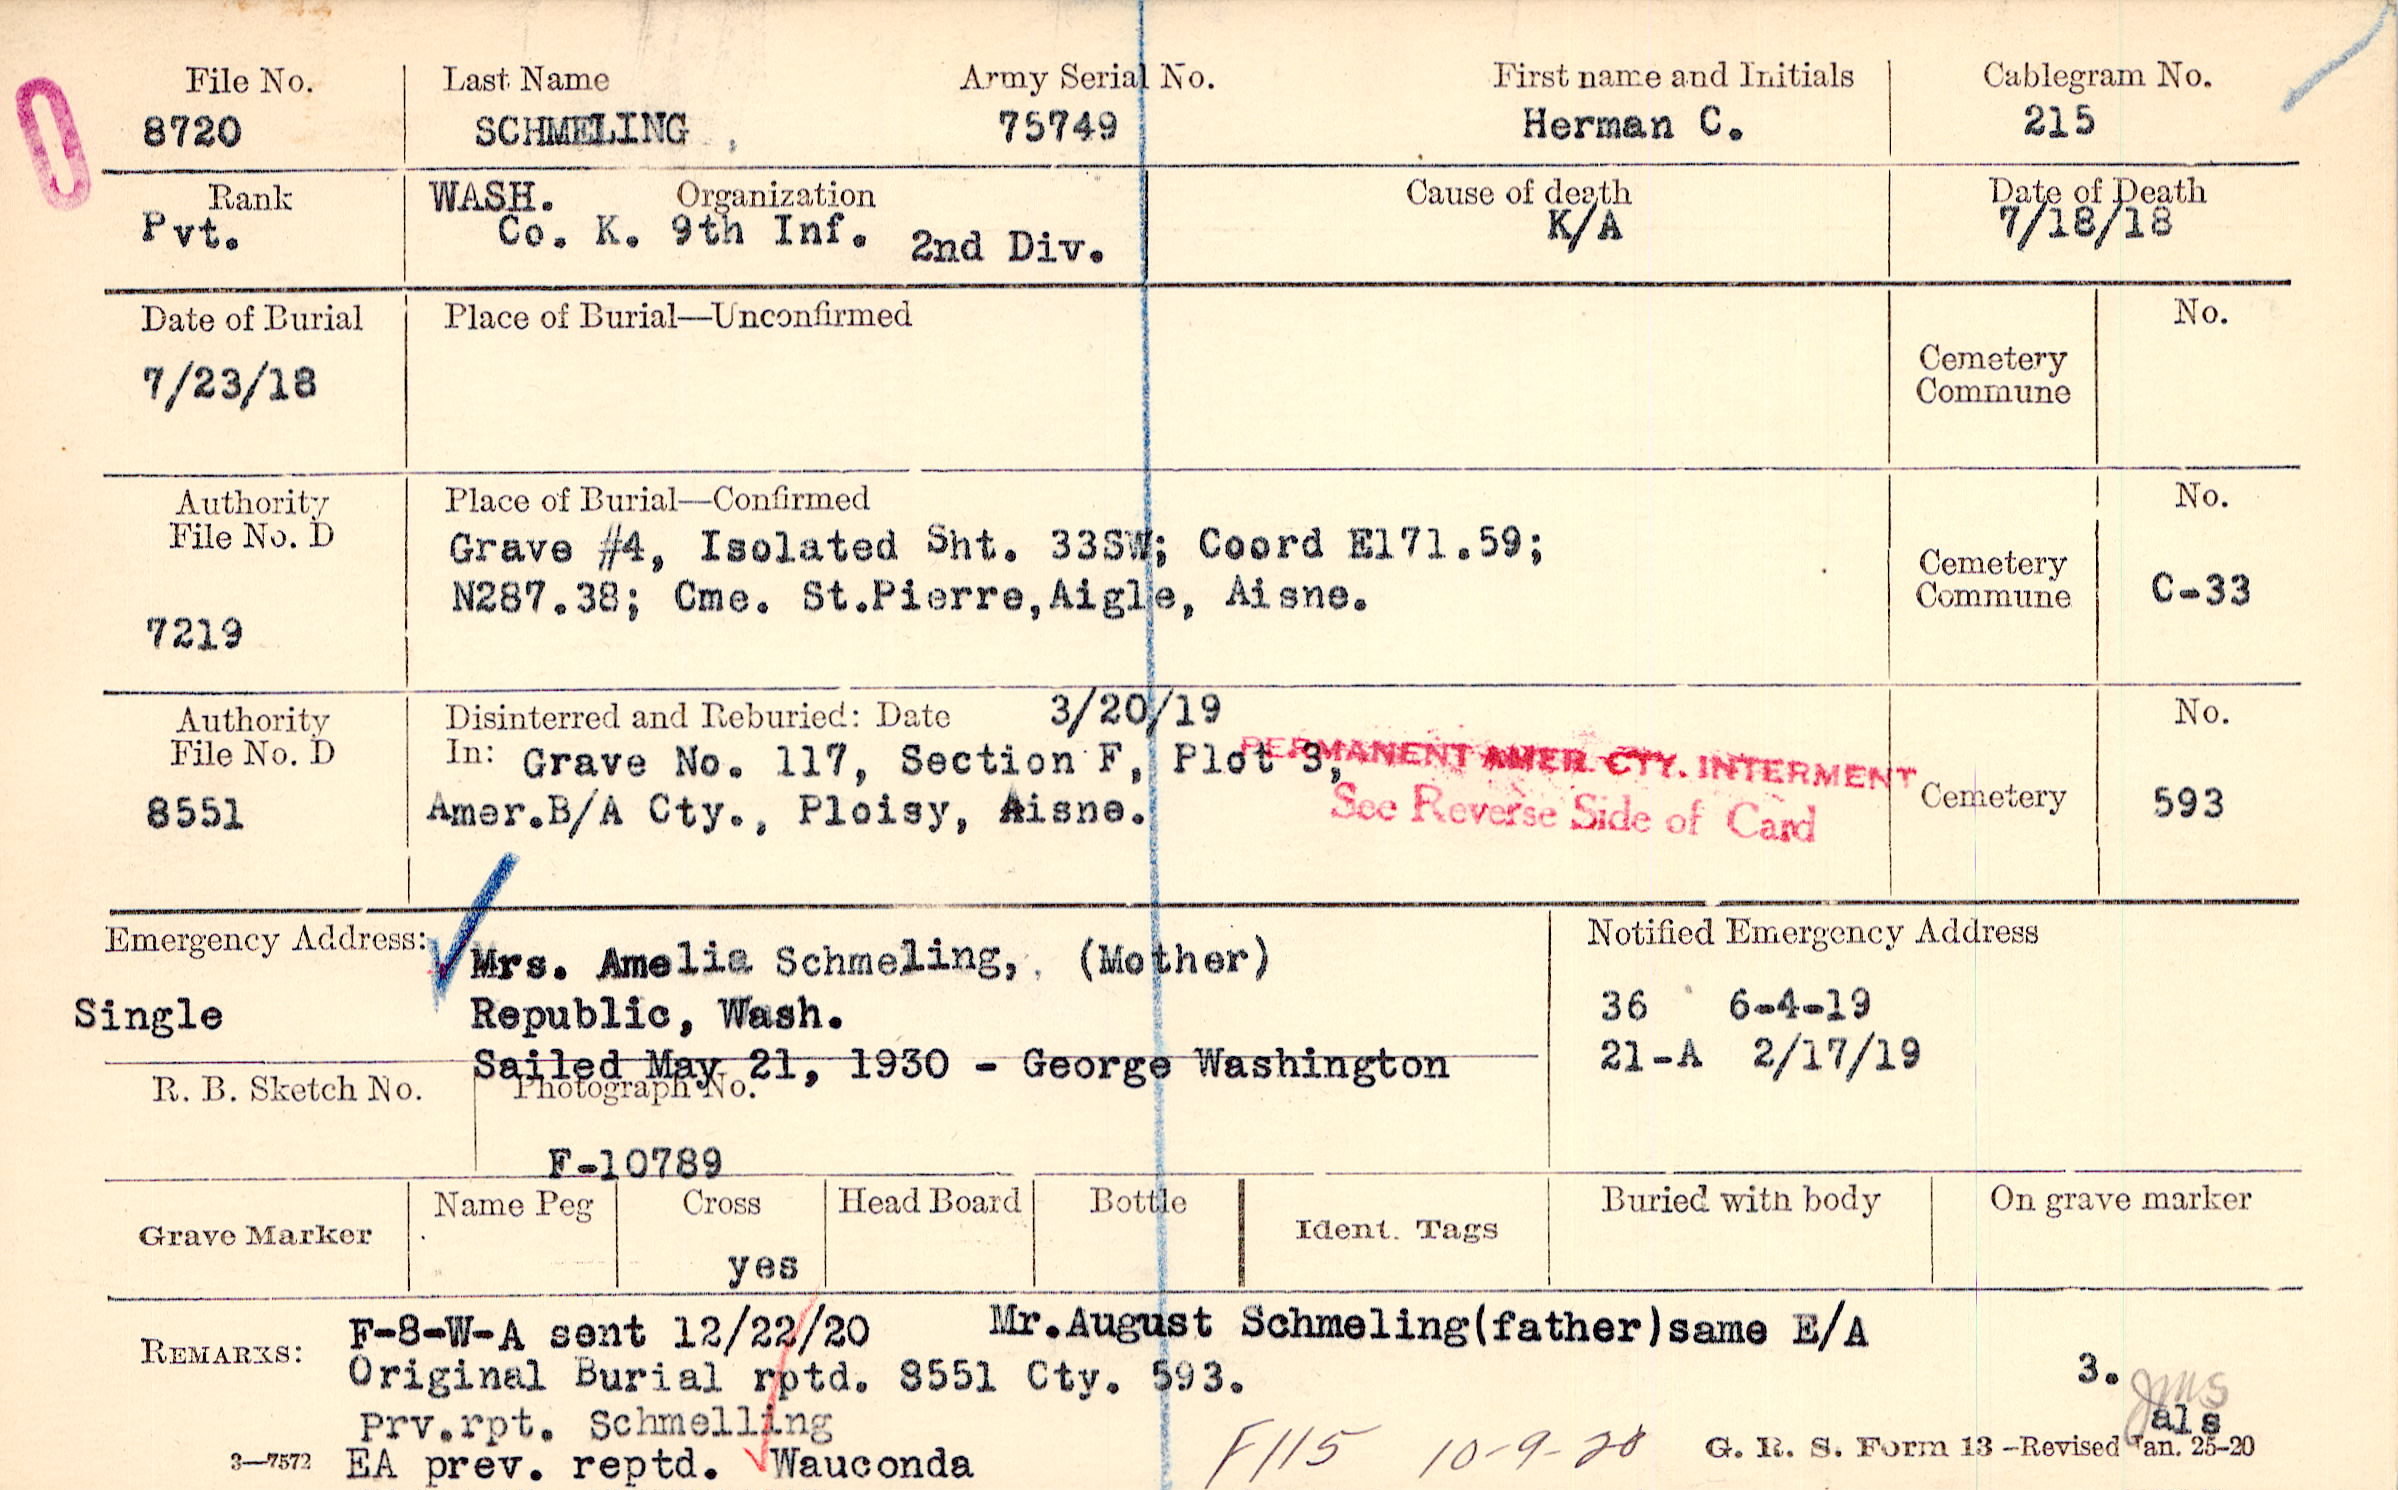 File No. Last Name Army Serial No. First name and Initials Cablegram No.
8720 SCHMELING , 75749 Herman C. 215
Rank WASH. Organization Cause of death Date of Death
Pvt. Co. K. 9th Inf. 2nd Div. K/A 7/18/18
Date of Burial Place of Burial—Unconfirmed No.
7/23/18 Cemetery
Commune
Authority Place of Burial—Confirmed No.
File No. D Grave #4, Isolated Sht. 33SW; Coord E171.59;
N287.38; Cme. St.Pierre,Aigle, Aisne. Cemetery
Commune C-33
7219
Authority Disinterred and Reburied: Date 3/20/19 No.
File No. D In: Grave No. 117, Section F, Plot 3,
PERMANENT AMER. CTY. INTERMENT
8551 Amer.B/A Cty., Ploisy, Aisne. See Reverse Side of Card Cemetery 593
Emergency Address: Mrs. Amelia Schmeling, (Mother) Notified Emergency Address
Single Republic, Wash. 36 6-4-19
Sailed May 21, 1930 - George Washington 21-A 2/17/19
R. B. Sketch No. Photograph No.
F-10789
Grave Marker Name Peg Cross Head Board Bottle Ident. Tags Buried with body On grave marker
yes
REMARKS: F-8-W-A sent 12/22/20 Mr.August Schmeling(father)same E/A
Original Burial rptd. 8551 Cty. 593. 3.
Prv.rpt. Schmelling als
3—7572 EA prev. reptd. Wauconda F115 10-9-28 G. R. S. Form 13 -Revised Jan. 25-20